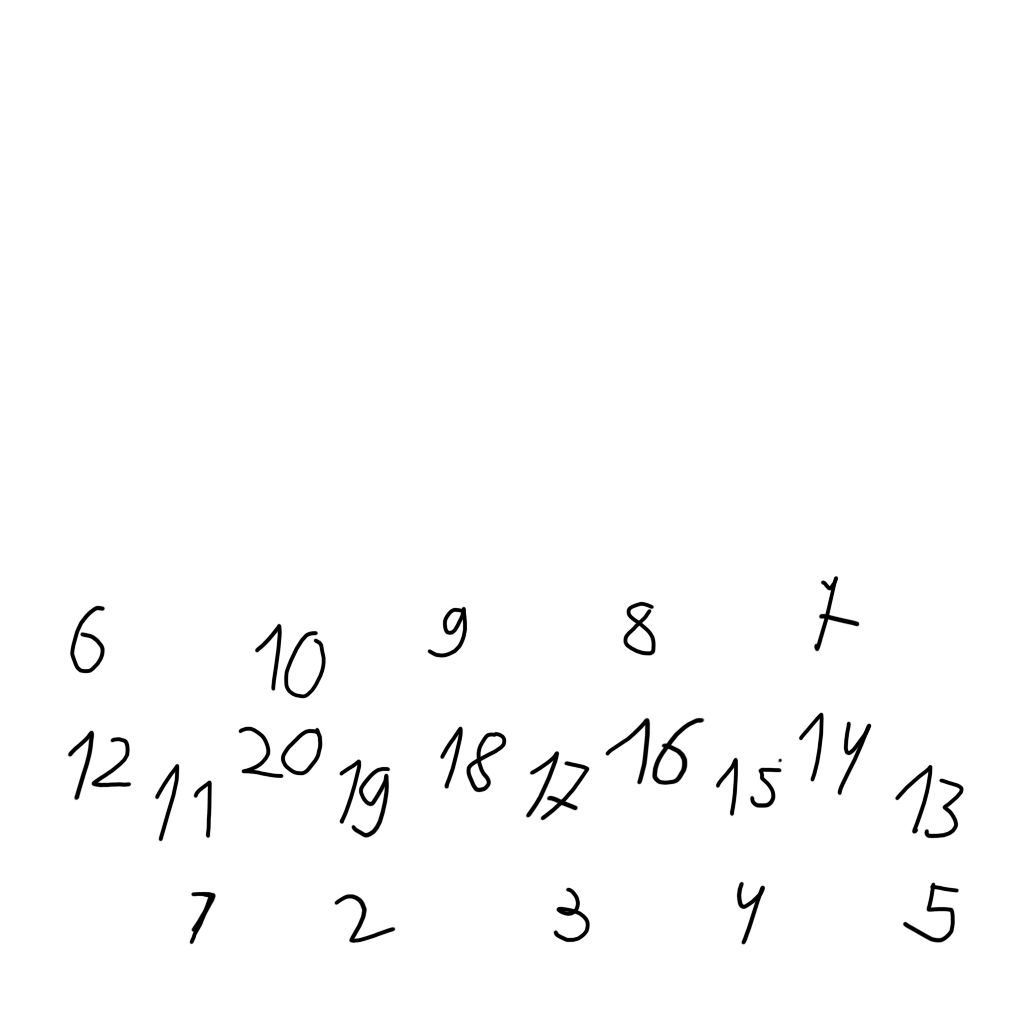 6 10 9 8 7
12 11 20 19 18 17 16 15 14 13
1 2 3 4 5